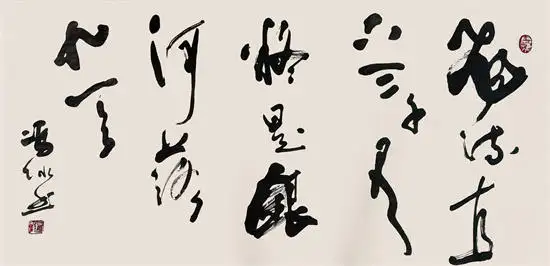 飛流直
下三千尺
疑是銀
河落
九天
冯